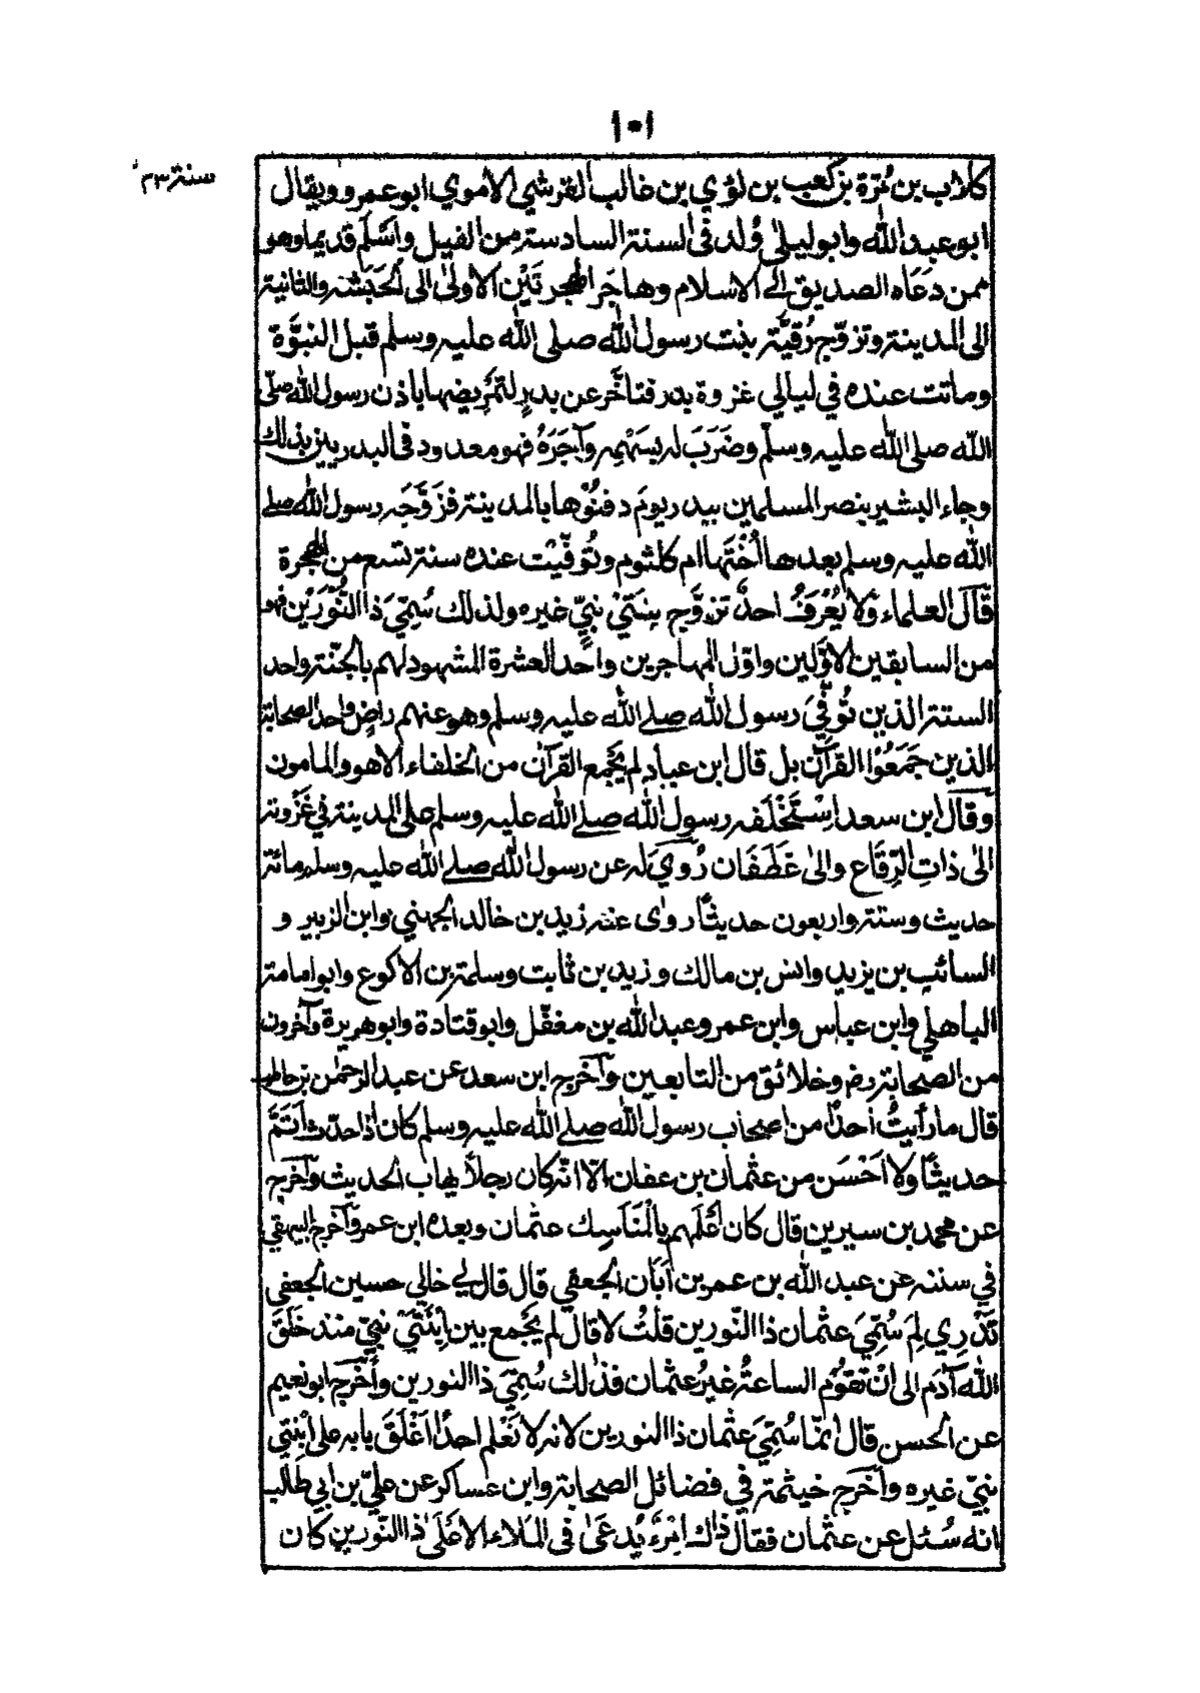 ١٠١
سنة ٢٣
كلاب بن مُرّة بن كعب بن لؤي بن غالب القرشي الاموي ابو عمرو ويقال
ابو عبد الله وابو ليلى وُلد فى السنة السادسة من الفيل واَسْلَم قديما وهو
ممن دَعَاه الصديق الى الاسلام وهاجَر الهجرتَيْن الاولى الى الحَبَشة والثانية
الى المدينة وتزوّج رُقيَّة بنت رسول الله صلى الله عليه وسلم قبل النبوَّة
وماتت عنده في ليالي غزوة بدر فتأخّر عن بدرٍ لتمريضها باذن رسول الله صلى
الله صلى الله عليه وسلم وضَرَبَ له بسَهْمِه وآجَرَهُ فهو معدود فى البدريين بذلك
وجاء البشير بنصر المسلمين ببدر يومَ دفنُوْها بالمدينة فزَوَّجَه رسول الله صلے
الله عليه وسلم بعدها اُخْتَها ام كلثوم وتُوفّيت عنده سنة تسع من الهجرة
قَالَ العلماء ولا يُعْرَفُ احدٌ تزوَّج بِنتَيْ نبيّ غيره ولذلك سُمِّيَ ذا النُّوْرَيْن فهو
من السابقين الاوّلين واوّل المهاجرين واَحد العشرة المشهود لهم بالجنّة واحد
الستة الذين تُوفّيَ رسول الله صلے الله عليه وسلم وهو عنهم راضٍ واحد الصحابة
الذين جَمَعُوْا القرآن بل قال ابن عباد لم يَجْمع القرآن من الخلفاء الا هو والمامون
وقَال ابن سعد اِسْتَخْلَفه رسول الله صلے الله عليه وسلم على المدينة في غَزْوته
الى ذاتِ الرِّقَاع والى غَطَفَان رُوِيَ له عن رسول الله صلے الله عليه وسلم مائة
حديث وستة واربعون حديثًا روى عنه زيد بن خالد الجهني وابن الزبير و
السائب بن يزيد وانس بن مالك وزيد بن ثابت وسلمة بن الاكوع وابو امامة
الباهلي وابن عباس وابن عمر وعبد الله بن مغفّل وابو قتادة وابو هريرة وآخرون
من الصحابة رض وخلائق من التابعين وآخرج ابن سعد عن عبد الرحمٰن بن حاطب
قال ما رأيتُ اَحدًا من اصحاب رسول الله صلے الله عليه وسلم كان اذا حدّث اَتَمَّ
حديثًا ولا اَحْسَن من عثمان بن عفان الّا انّه كان رجلاً يهاب الحديث وآخرج
عن محمد بن سيرين قال كان اَعْلَمهم بالْمَنَاسِك عثمان وبعده ابن عمر وآخرج البيهقي
في سننه عن عبد الله بن عمر بن اَبَان الجعفي قال قال لي خالي حسين الجعفي
تَدْرِي لِمَ سُمِّيَ عثمان ذا النّورين قلتُ لا قال لم يَجْمع بين اِبْنَتَيْ نبيّ منذ خَلَقَ
الله آدَم الى انْ تقوْم الساعةُ غيرُ عثمان فذلك سُمِّيَ ذا النورين وأَخْرج ابو نعيم
عن الحسن قال انّما سُمِّيَ عثمان ذا النورين لانه لا نَعْلم احدًا اَغْلَقَ بابه على ابْنَتَي
نبيّ غيره وآخرج خيثمة في فضائل الصحابة وابن عساكر عن عليّ بن ابي طالب
انه سُئل عن عثمان فقال ذاك امْرَءٌ يُدعَى فى المَلاء الاَعْلَى ذا النّورين كان